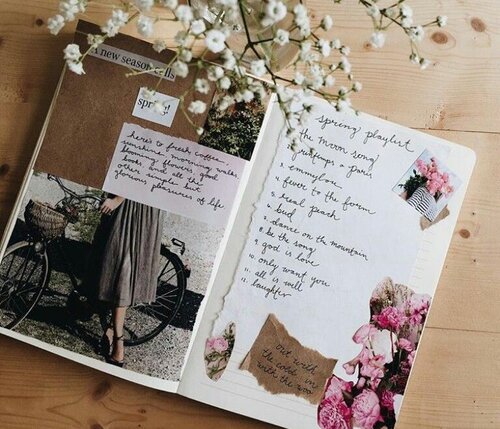 A new season calls
spring!
here's to fresh coffee,
sunshine, morning walks,
blooming flowers, good
books, and all the
other simple but
glorious pleasures of life
spring playlist
the moon song
printemps a paris
emmylou
fever to the form
real peach
bud
dance on the mountain
be the song
god is love
10. only want you
11. all is well
12. laughter
out with
the cold, in
with the woo